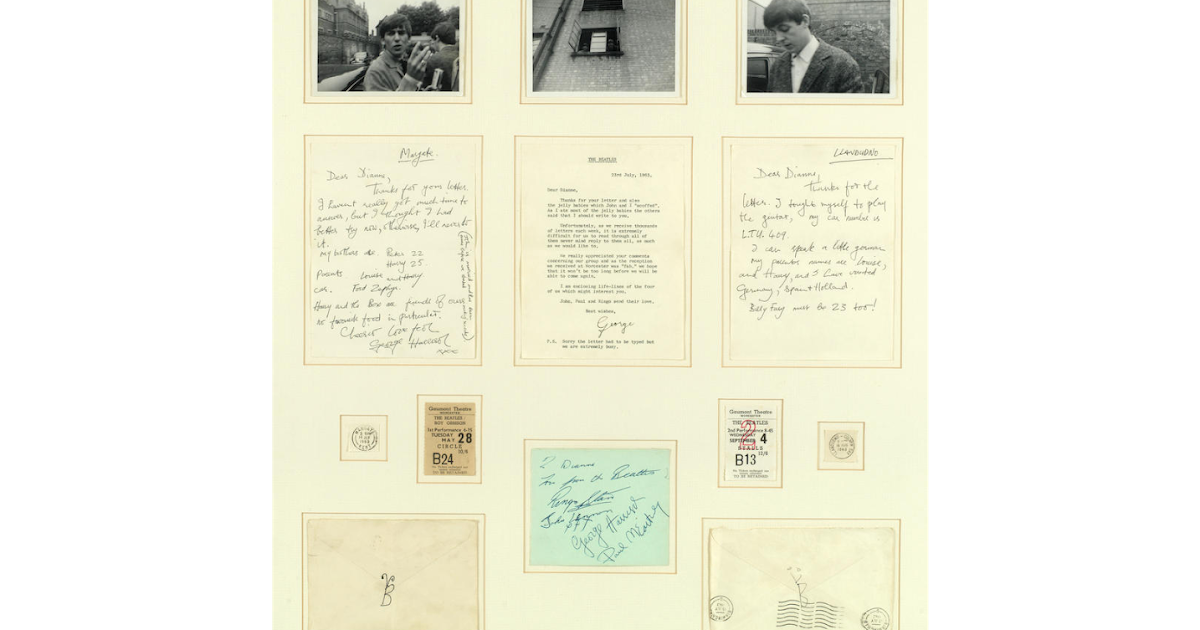 Margate.
Dear Dianne,
Thanks for your letter.
I haven't really got much time to
answer, but I thought I had
better try now, otherwise, I'll never do
it.
My brothers are: Peter 22
Harry 25.
Parents Louise and Harry
car. Ford Zephyr.
Harry and Pete are friends of ours
no favourite food in particular.
Cheerio Love from
George Harrison
xxxx
THE BEATLES
July, 1963.
Dear Dianne,
Thanks for your letter and also
the jelly babies which John and I "scoffed".
As I ate most of the jelly babies the others
said that I should write to you.
Unfortunately, as we receive thousands
of letters each week, it is extremely
difficult for us to read through all of
them never mind reply to them all, as much
as we would like to.
We really appreciated your comments
concerning our group and as the reception
we received at Worcester was "fab," we hope
that it won't be too long before we will be
able to come again.
I am enclosing life-lines of the four
of us which might interest you.
John, Paul and Ringo send their love.
Best wishes,
George
P.S. Sorry the letter had to be typed but
we are extremely busy.
LLANDUDNO
Dear Dianne,
Thanks for the
letter. I taught myself to play
the guitar, my car number is
LTU 409.
I can speak a little german
my parents names are Louise,
and Harry, and I have visited
Germany, Spain & Holland.
Billy Fury must be 23 too!
Gaumont Theatre
WORCESTER
THE BEATLES
ROY ORBISON
1st Performance 6-15
TUESDAY
MAY 28
CIRCLE
B24
Gaumont Theatre
WORCESTER
THE BEATLES
2nd Performance 8-45
WEDNESDAY
SEPTEMBER 4
2
B13
To Dianne
Love from the Beatles
Ringo Starr
John Lennon
George Harrison
Paul McCartney
B
B